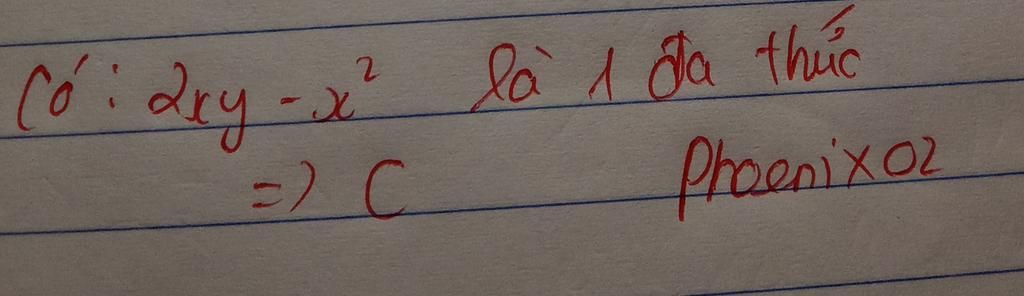 Có: 2xy - x² là 1 đa thức
=> C PhoeniX02